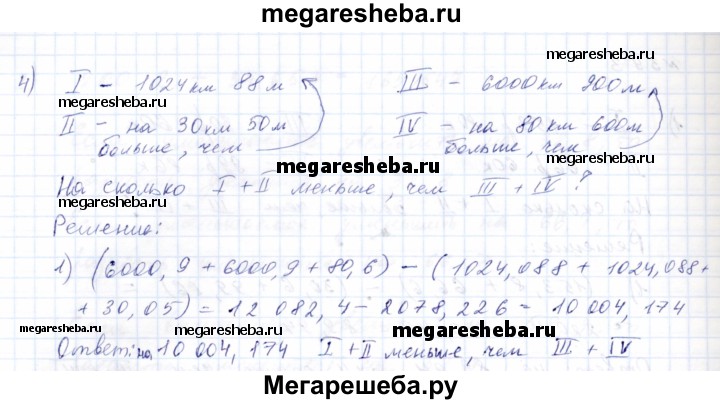 megaresheba.ru
4) I – 1024 км 88 м III – 6000 км 900 м
megaresheba.ru
megaresheba.ru
II – на 30 км 50 м IV – на 80 км 600 м
megaresheba.ru
больше, чем больше, чем
megaresheba.ru
megaresheba.ru
На сколько I + II меньше, чем III + IV ?
megaresheba.ru
Решение:
1) (6000,9 + 6000,9 + 80,6) – (1024,088 + 1024,088 +
+ 30,05) = 12 082,4 – 2078,226 = 10 004,174
megaresheba.ru
megaresheba.ru
megaresheba.ru
megaresheba.ru
Ответ: на 10 004,174 I + II меньше, чем III + IV
Мегарешеба.ру